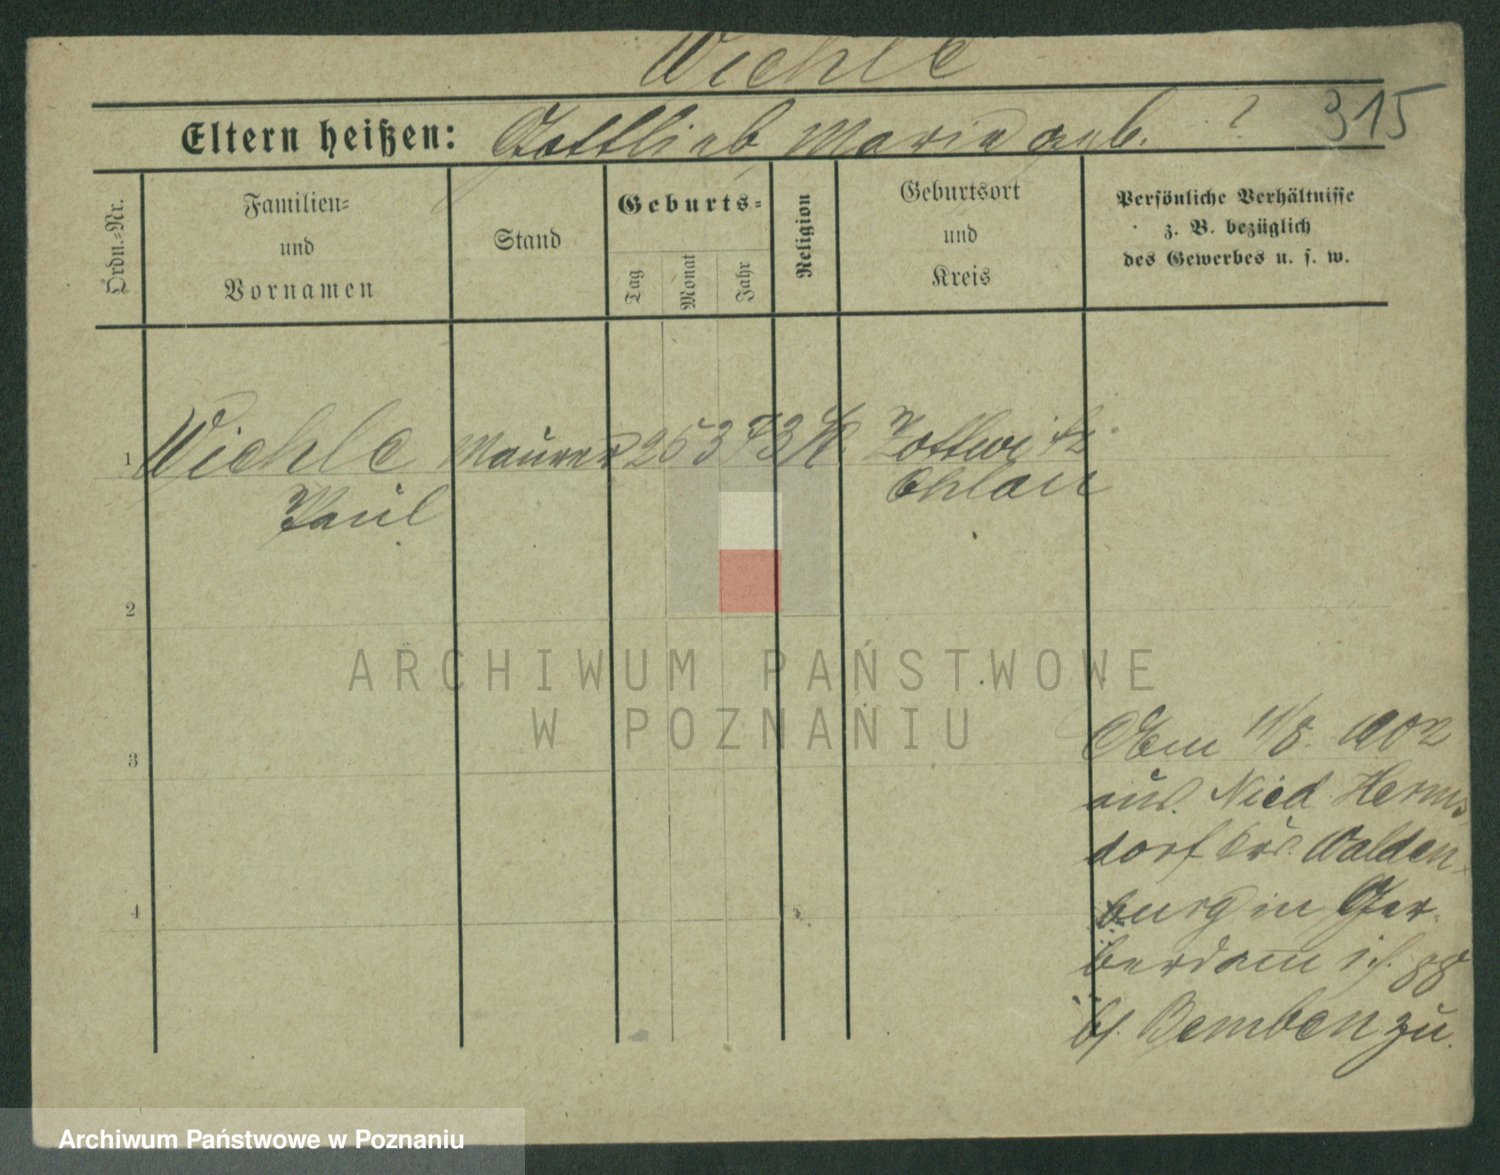 Wiehle
Eltern heißen: Gottlieb Marie geb. ? 315
Ordn.-Nr.
Familien-
und
Vornamen
Stand
Geburts-
Tag
Monat
Jahr
Religion
Geburtsort
und
Kreis
Persönliche Verhältnisse
z. B. bezüglich
des Gewerbes u. s. w.
1 Wiehle Maurer 25 3 73 K. Zottwitz
Paul Ohlau
2
3
4
11/8. 1902
aus. Nied Herms
dorf Krs. Walden-
burg in Ger-
berdam
b/ Bemben zu.
ARCHIWUM PAŃSTWOWE
W POZNANIU
Archiwum Państwowe w Poznaniu